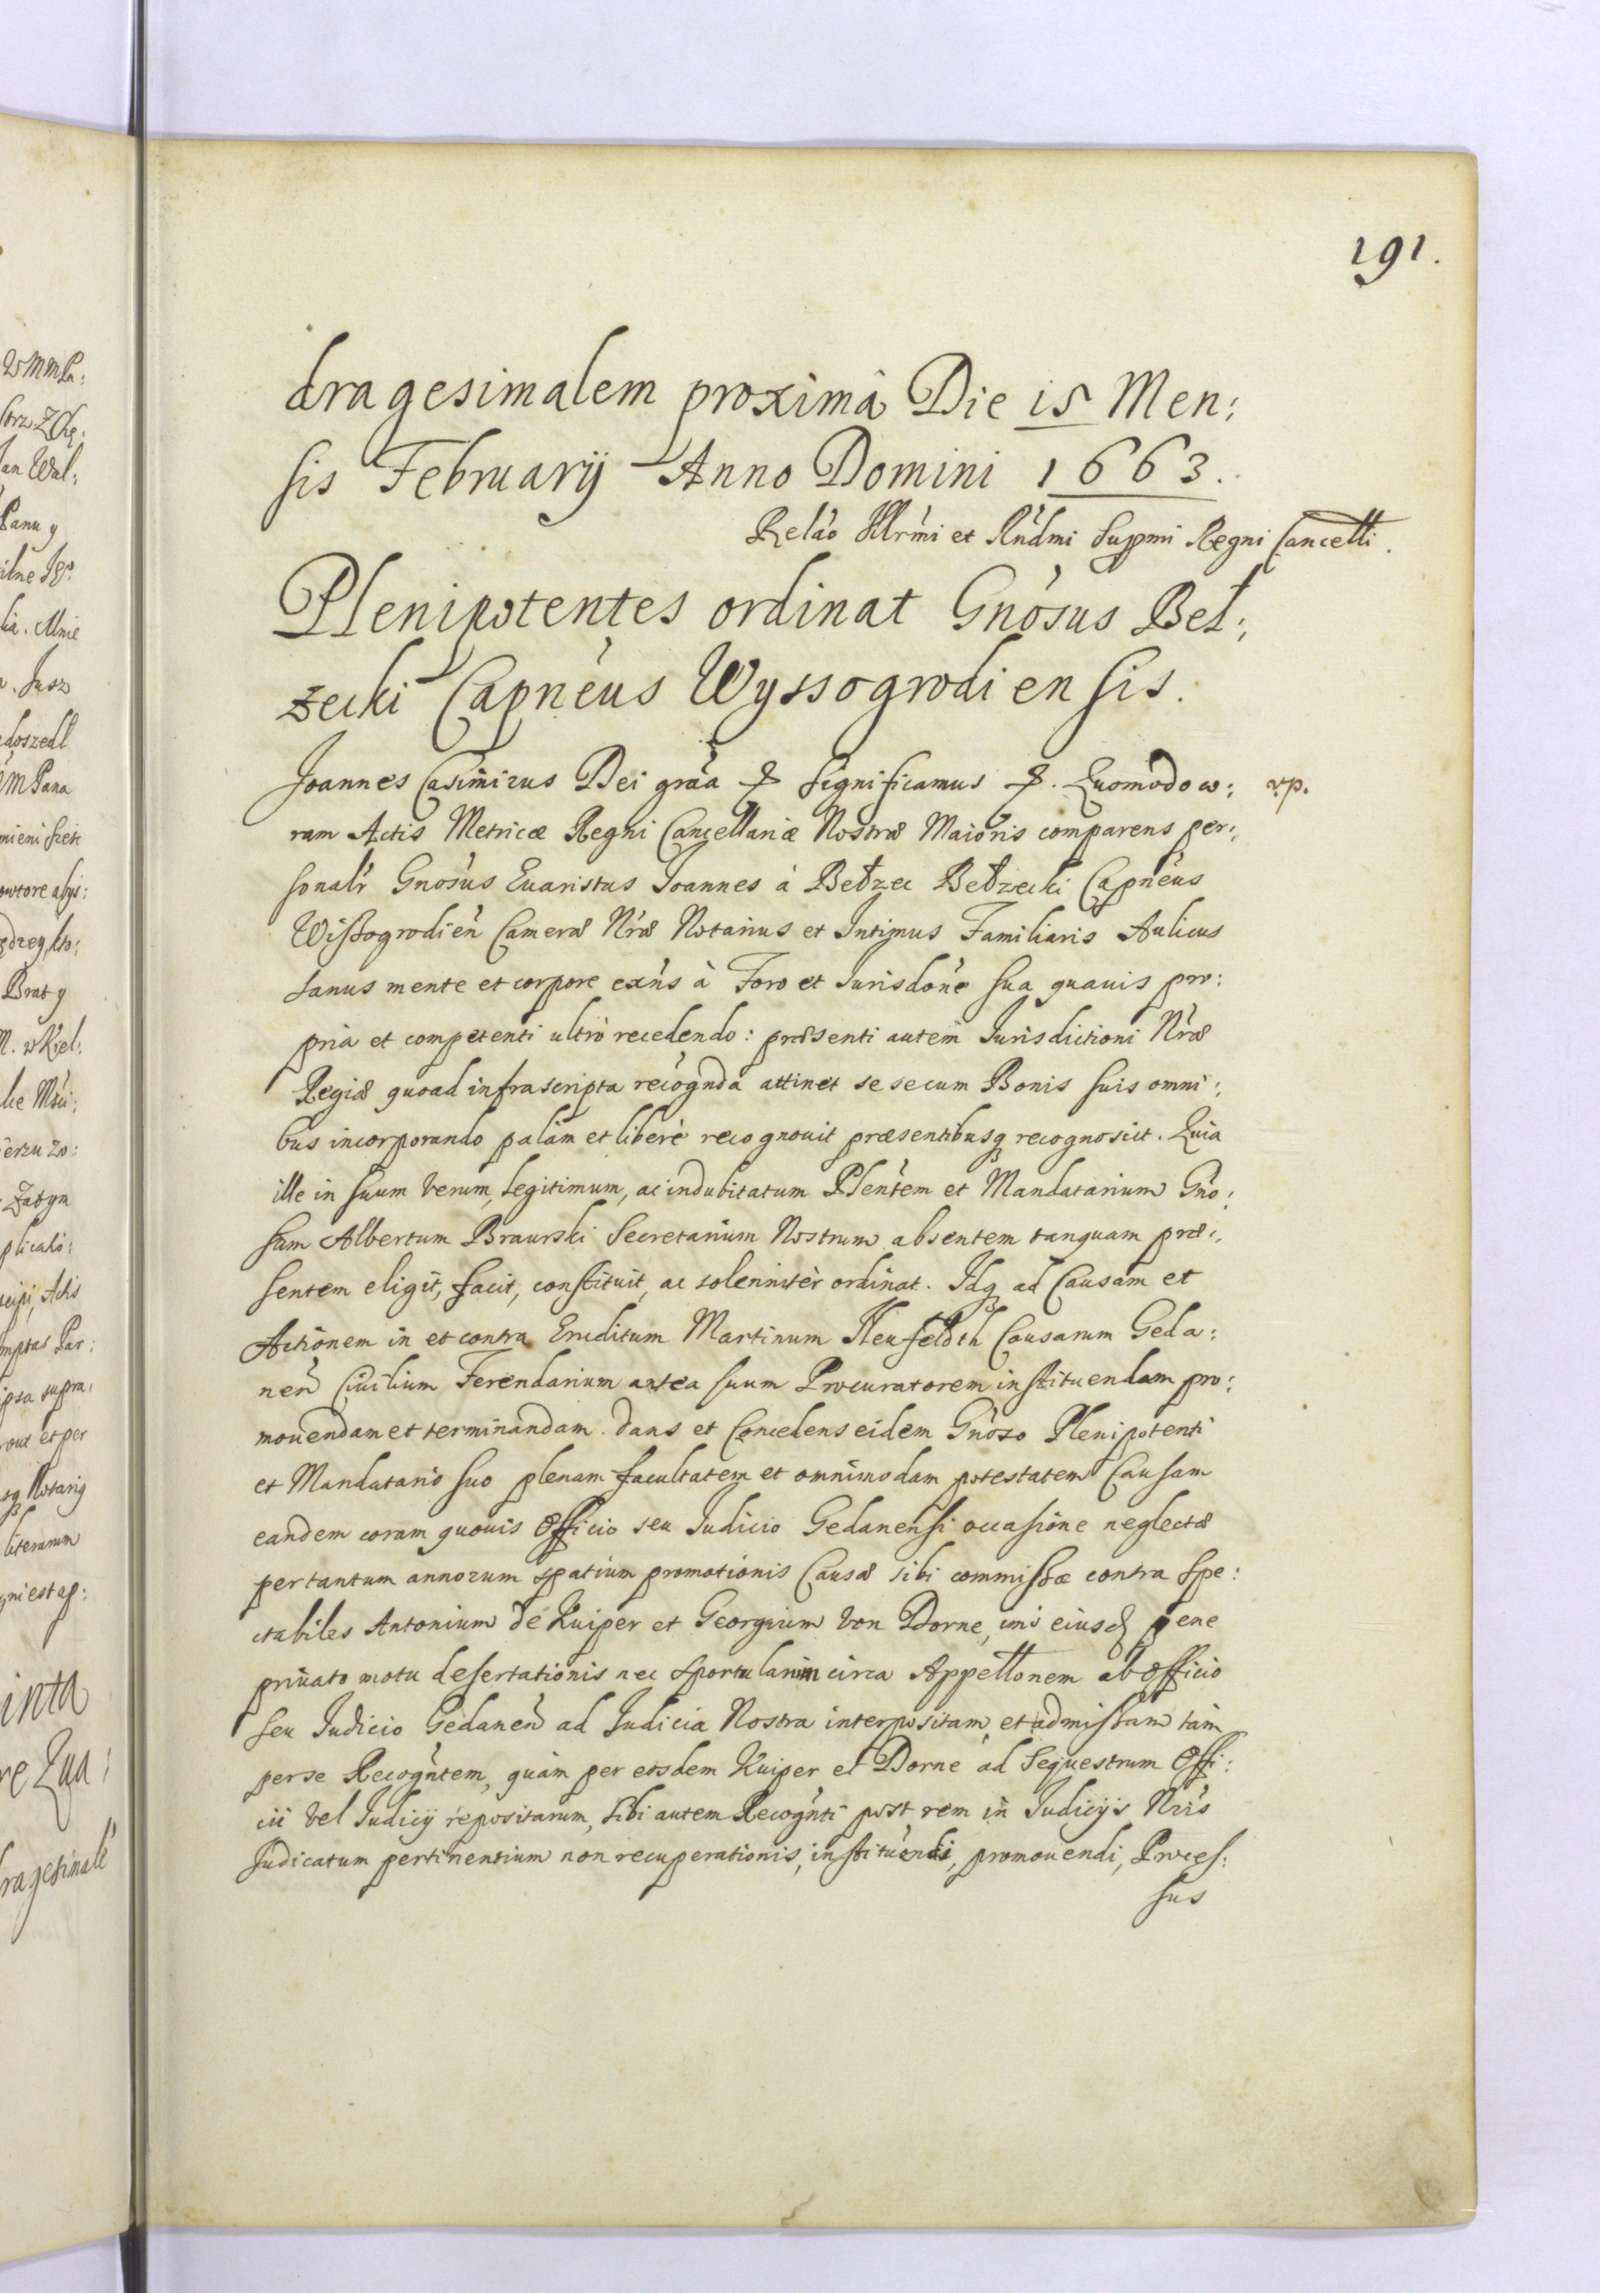 191.
dragesimalem proximâ Die 15 Men:
sis Februarij Anno Domini 1663.
Relão Illr̃mi et Rñdmi Suppmi Regni Cancelli.
Plenipotentes ordinat Gnõsus Beł:
zecki Capnẽus Wyssogrodiensis.
Joannes Casimirus Dei grãa significamus Quomodo co: vp.
ram Actis Metricæ Regni Cancellariæ Nostræ Maioris comparens per:
sonalr̃ Gnosũs Evaristus Joannes à Bełzec Bełzecki Capnẽus
Wissogrodieñ Cameræ Nr̃æ Notarius et Intimus Familiaris Aulicus
sanus mente et corpore exñs à Foro et Jurisdõne sua quauis pro:
pria et competenti ultrò recedendo: præsenti autem Jurisdictioni Nr̃æ
Regiæ quoad infrascripta recognda attinet se secum Bonis suis omni:
bus incorporando palàm et liberè recognouit præsentibusq recognoscit. Quia
ille in suum verum, legitimum, ac indubitatum Plenẽtem et Mandatarium Gño:
sum Albertum Braurski Secretarium Nostrum absentem tanquam præ:
sentem eligit, facit, constituit, ac solennitèr ordinat. Idq ad Causam et
Actionem in et contra Eruditum Martinum Neufeldth Causarum Geda:
neñ Ciuilium Ferendarium antea suum Procuratorem instituendam pro:
mouendam et terminandam. dans et Concedens eidem Gñoso Plenipotenti
et Mandatario suo plenam facultatem et omnimodam potestatem Causam
eandem coram quouis Officio seu Judicio Gedanensi occasione neglectæ
per tantum annorum spatium promotionis Causæ sibi commissæ contra Spe:
ctabiles Antonium de Kuiper et Georgium von Dorne, eiusd pene
priuato motu desertationis nec sportularum circa Appellonem ab Officio
seu Judicio Gedaneñ ad Judicia Nostra interpositam et admissam tàm
per se Recogñtem, quàm per eosdem Kuiper et Dorne ad Sequestrum Offi:
cii vel Judicij repositarum, sibi autem Recogñti post rem in Judicijs Nr̃is
Judicatum pertinentium non recuperationis, instituendi, promouendi, Proces:
sus